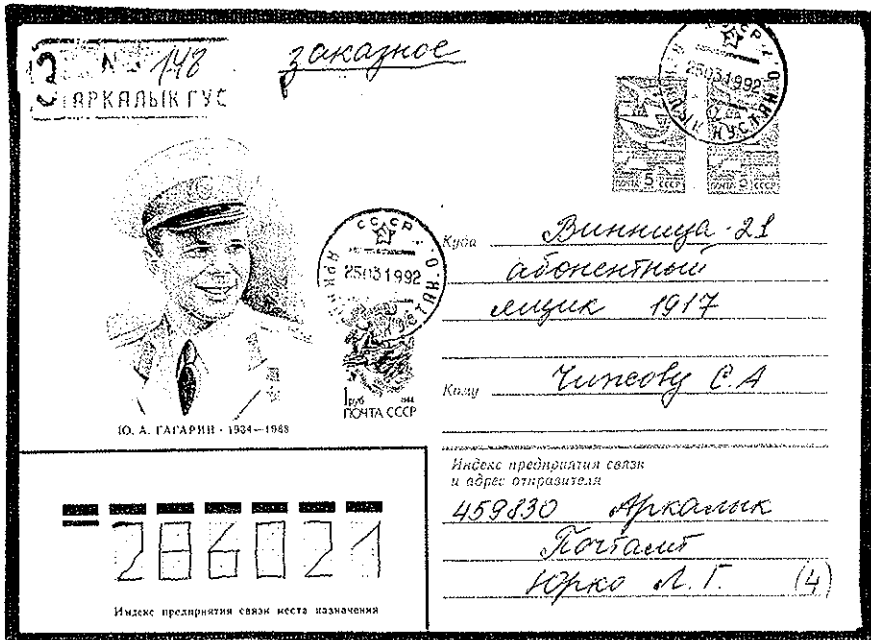 заказное
З № 148
АРКАЛЫК ГУС
СССР
25031992
ПОЧТА 5 СССР
ПОЧТА 5 СССР
СССР
25031992
1 руб
ПОЧТА СССР
Ю. А. ГАГАРИН · 1934—1968
Куда Винница-21
абонентный
ящик 1917
Кому Чижову С.А
Индекс предприятия связи
и адрес отправителя
459830 Аркалык
Почтамт
Юрко Л. Г. (4)
286021
Индекс предприятия связи места назначения